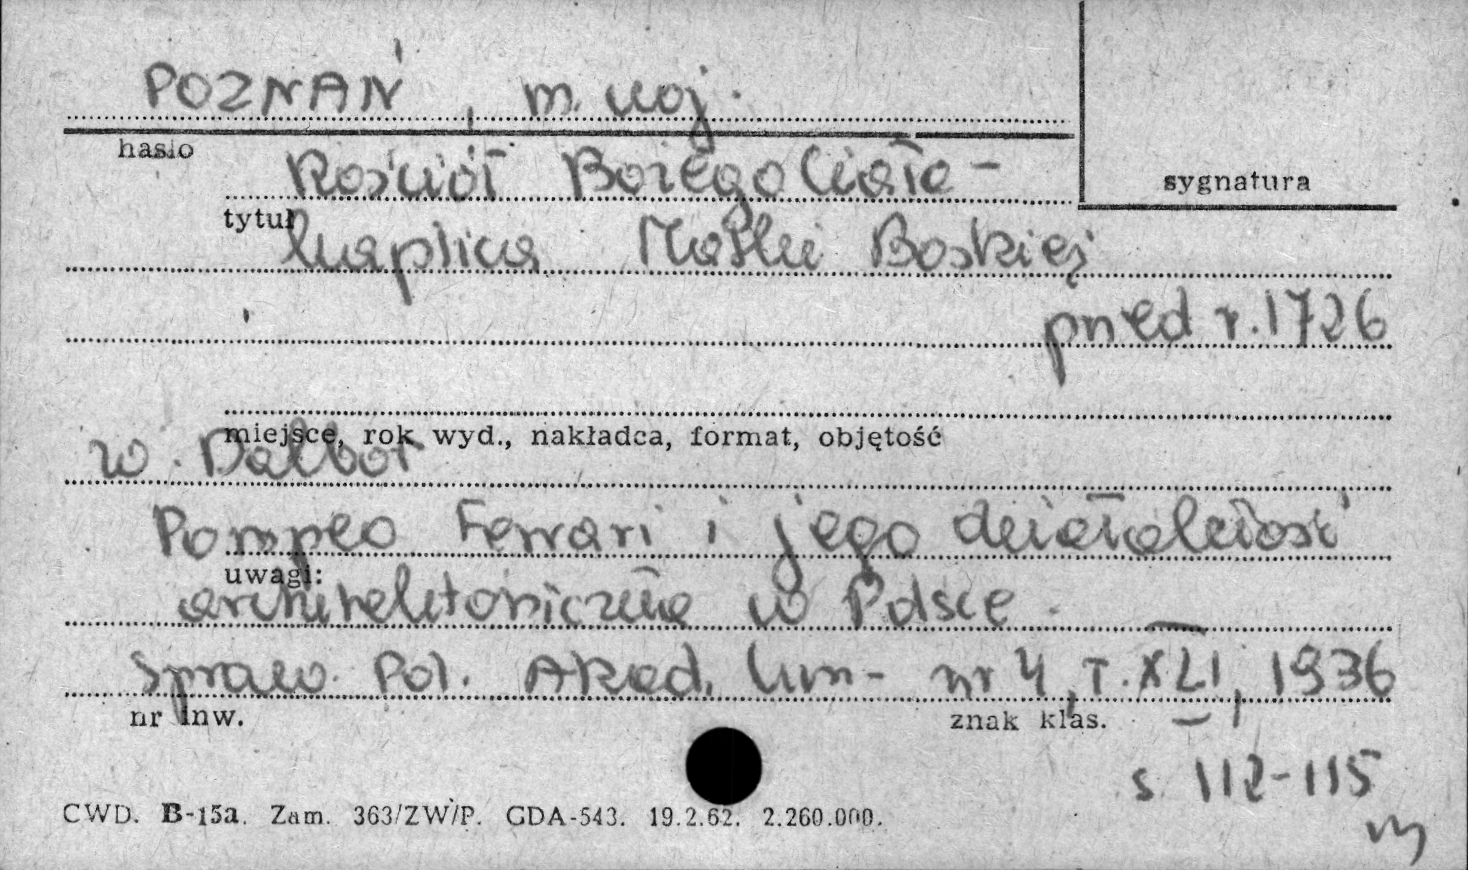 POZNAŃ, m. woj.
hasło
Kościół Bożego Ciała -
sygnatura
tytuł
kaplica Matki Boskiej
przed r. 1726
miejsce, rok wyd., nakładca, format, objętość
W. Dalbor
Pompeo Ferrari i jego działalność
uwagi:
architektoniczna w Polsce.
Spraw. Pol. Akad. Um- nr 4, T. XLI, 1936
nr inw.
znak klas.
s. 112-115
CWD. B-15a. Zam. 363/ZW/P. GDA-543. 19.2.62. 2.260.000.